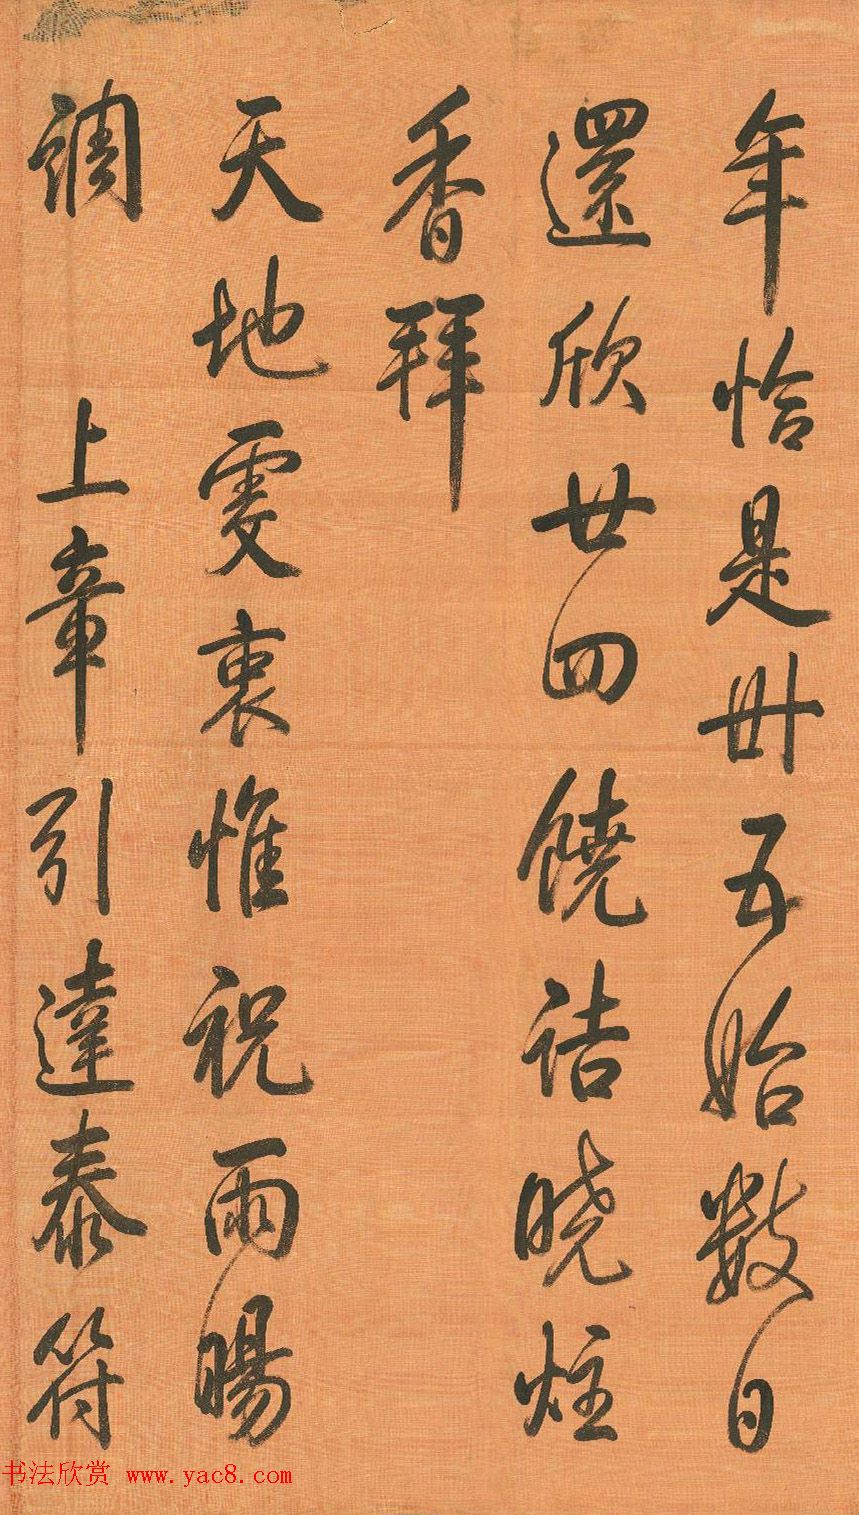 年恰是卅五始數日
還欣廿四饒詰曉炷
香拜
天地雯衷惟祝雨暘
調 上章引達泰符
书法欣赏 www.yac8.com